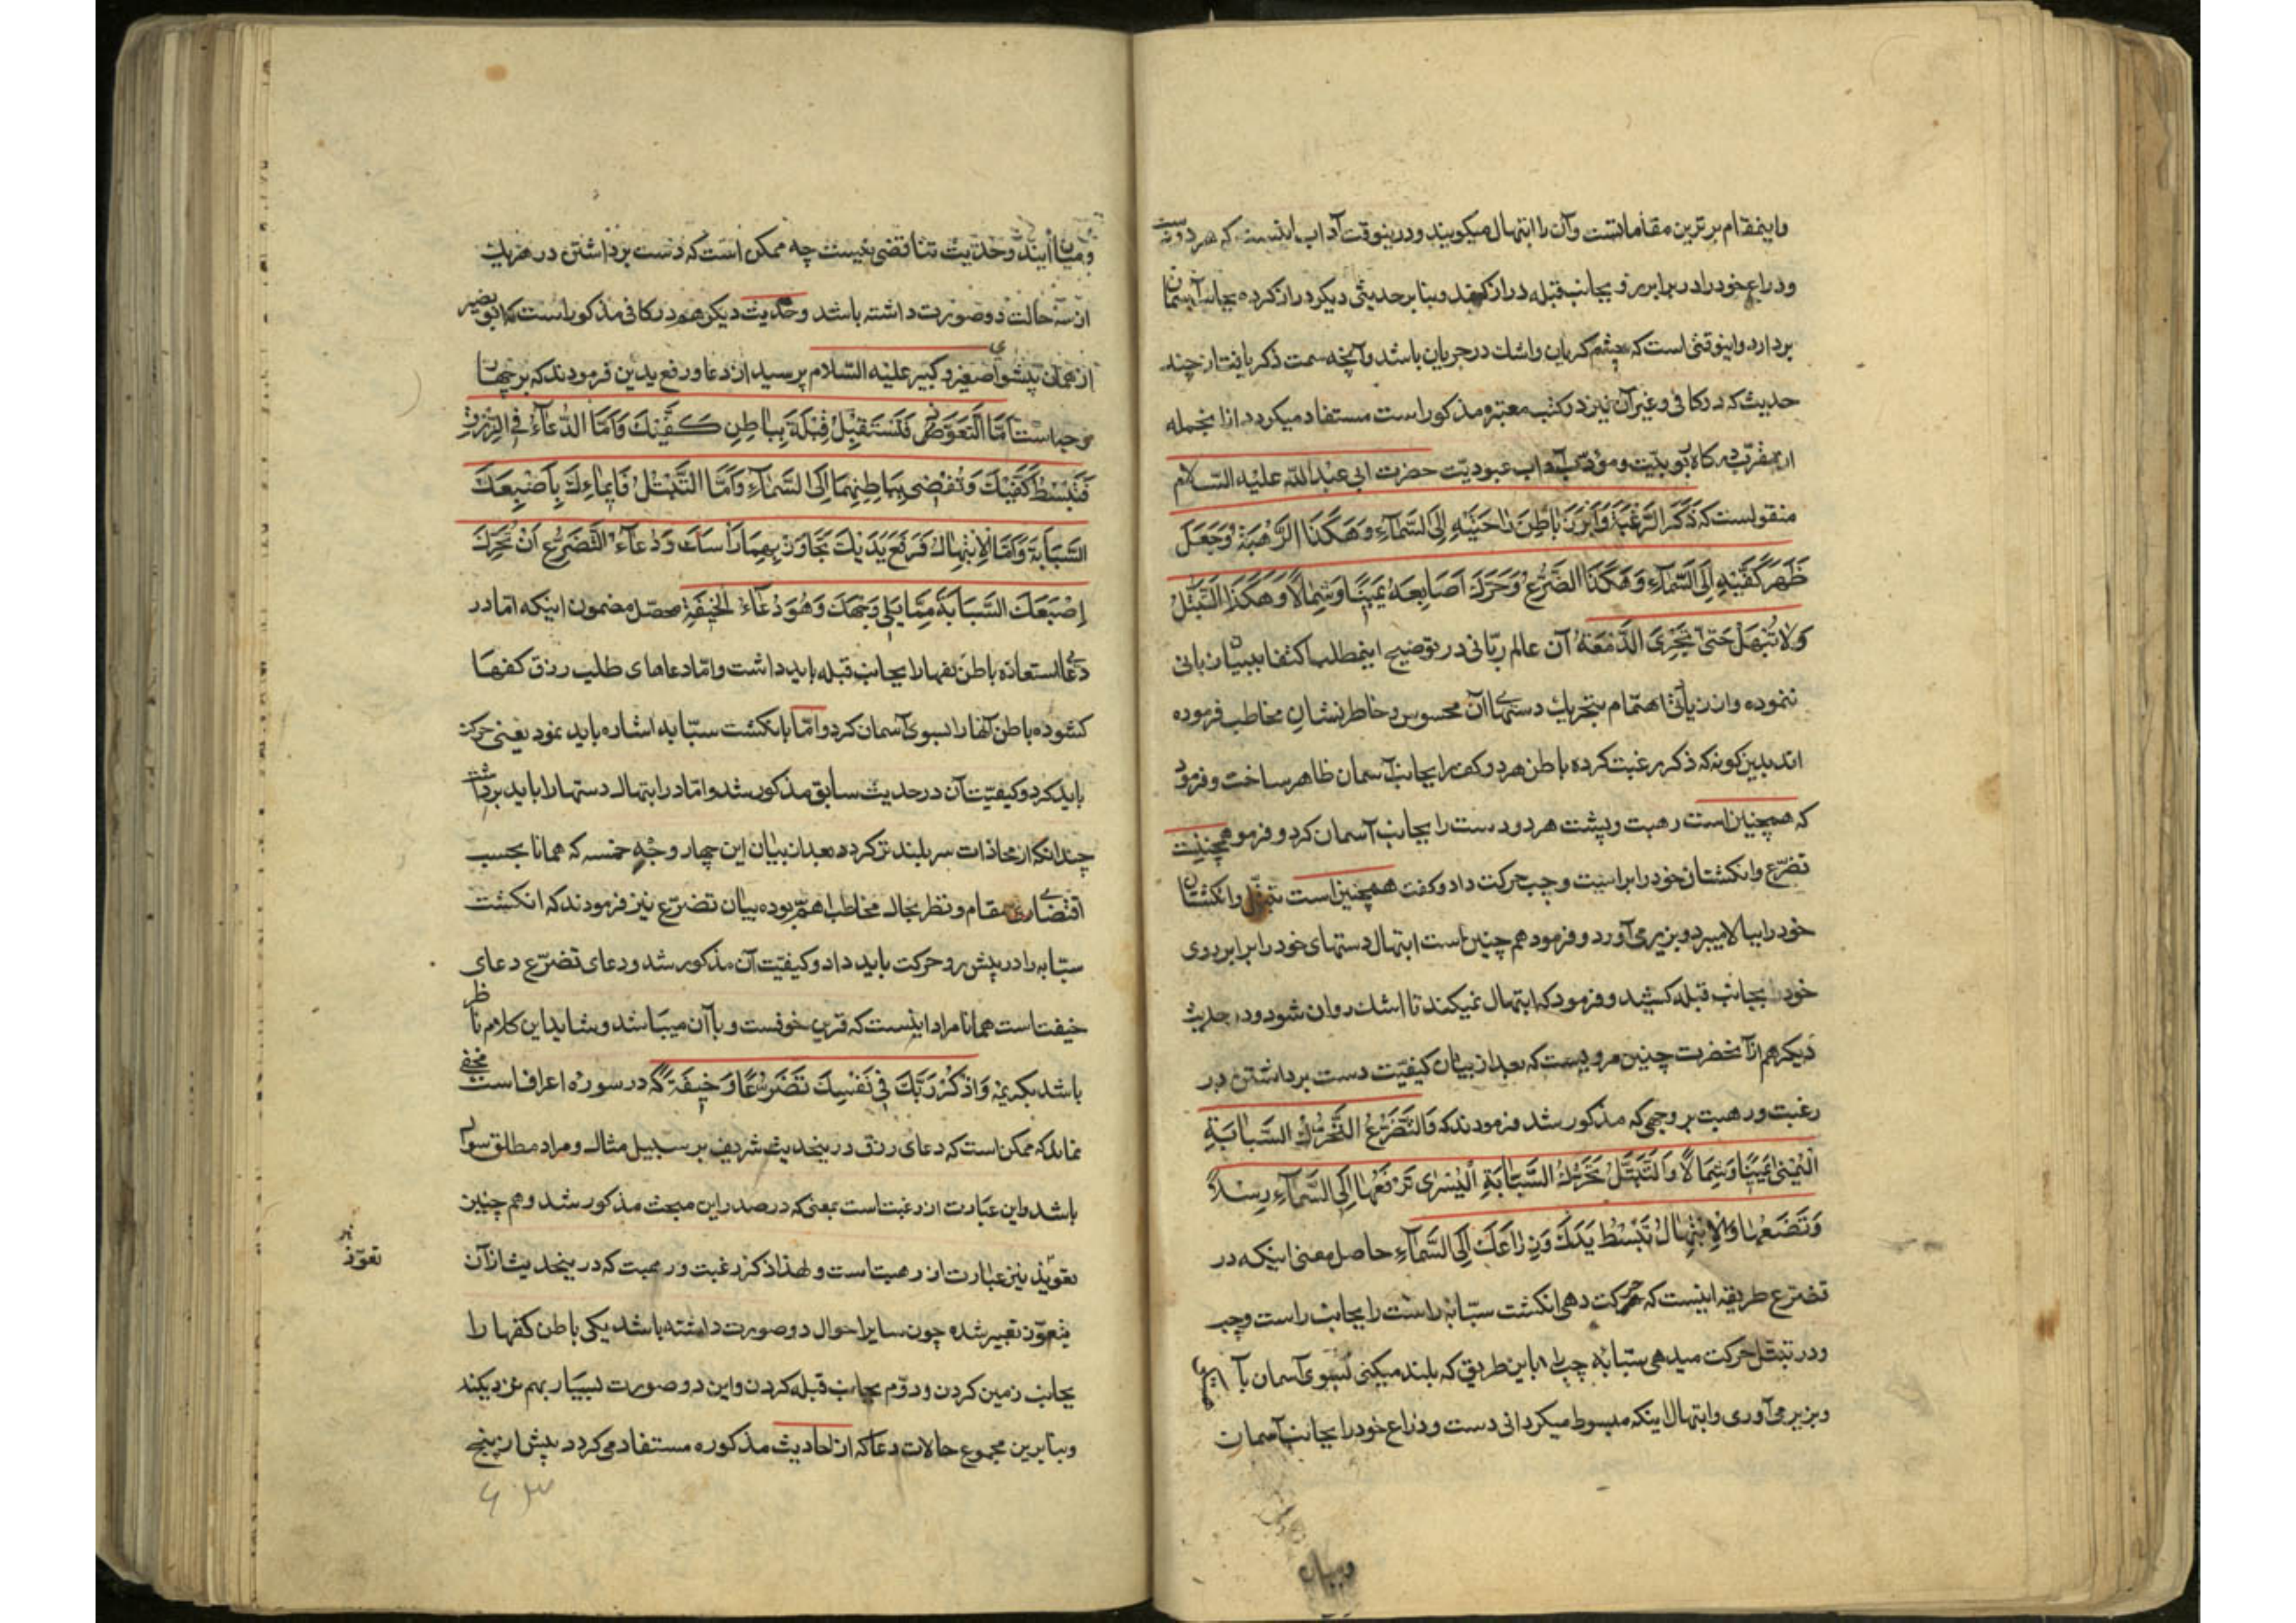 واینمقام برترین مقاماتست وآن را ابتهال میکویند ودرینوقت آداب اینست که هر دو دست
وذراع خود را در برابر رو بجانب قبله دراز کند وبنا بر حدیثی دیکر دراز کرده بجانب آسمان
بردارد واینوقتی است که چشم کریان واشك در جریان باشد وآنچه سمت ذکر یافت از چند
حدیث که در کافی وغیر آن نیز در کتب معتبره مذکور است مستفاد میکردد از انجمله
از مقرّب درکاه ربوبیّت ومؤدّب بآداب عبودیّت حضرت ابی عبد اللّه علیه السّلام
منقولست که ذَکَرَ الرَّغْبَةَ وَاَبْرَزَ بَاطِنَ رَاحَتَیْهِ اِلَی السَّمَآءِ وَهَکَذَا الرَّهْبَةُ وَجَعَلَ
ظَهْرَ کَفَّیْهِ اِلَی السَّمَآءِ وَهَکَذَا التَّضَرُّعُ وَحَرَّكَ اَصَابِعَهُ یَمِینًا وَشِمَالًا وَهَکَذَا التَّبَتُّلُ
وَلَا تُبْتَهَلْ حَتّی تَجْرِیَ الدَّمْعَةُ آن عالم ربّانی در توضیح اینمطلب اکتفا ببیان بانی
ننموده واز زیادتی اهتمام بتحریك دستها آن محسوس وخاطرنشان مخاطب فرموده
اند بدین کونه که ذکر رغبت کرده باطن هر دو کف را بجانب آسمان ظاهر ساخت وفرمود
که همچنین است رهبت وپشت هر دو دست را بجانب آسمان کرد وفرمود همچنین است
تضرّع وانکشتان خود را براست وچپ حرکت داد وکفت همچنین است تبتّل وانکشتان
خود را ببالا میبرد وبزیر می آورد وفرمود هم چنین است ابتهال دستهای خود را برابر روی
خود بجانب قبله کشید وفرمود که ابتهال نمیکند تا اشك روان شود ودر حدیث
دیکر هم از آنحضرت چنین مرویست که بعد از بیان کیفیّت دست برداشتن در
رغبت ورهبت بر وجهی که مذکور شد فرمودند که وَالتَّضَرُّعُ التَّحَرُّكُ السَّبَّابَةِ
الْیُمْنَی یَمِینًا وَشِمَالًا وَالتَّبَتُّلُ تَحَرُّكُ السَّبَّابَةِ الْیُسْرَی تَرْفَعُهَا اِلَی السَّمَآءِ رِسْلًا
وَتَضَعُهَا وَالْاِبْتِهَالُ تَبْسُطُ یَدَكَ وَذِرَاعَكَ اِلَی السَّمَآءِ حاصل معنی اینکه در
تضرّع طریقه اینست که حرکت دهی انکشت سبّابهٔ راست را بجانب راست وچپ
ودر تبتّل حرکت میدهی سبّابه چپ را باین طریق که بلند میکنی بسوی آسمان بآ
وبزیر می آوری وابتهال اینکه مبسوط میکردانی دست وذراع خود را بجانب آسمان
ومیان
ومیان ایندو حدیث تناقضی نیست چه ممکن است که دست برداشتن در هر یك
از سه حالت دو صورت داشته باشد وحدیث دیکر هم در کافی مذکور است که ابو بصیر
از همان پیشوای صغیر وکبیر علیه السّلام پرسید از دعا ورفع یدین فرمودند که بر چهار
وجه است اَمَّا التَّعَوُّذُ فَتَسْتَقْبِلُ قِبْلَةَ بِبَاطِنِ کَفَّیْكَ وَاَمَّا الدُّعَآءُ فِی الرِّزْقِ
فَتَبْسُطُ کَفَّیْكَ وَتُفْضِی بِبَاطِنِهِمَا اِلَی السَّمَآءِ وَاَمَّا التَّبَتُّلُ فَایمَاءِكَ بِاَصْبِعِكَ
السَّبَّابَةِ وَاَمَّا الْاِبْتِهَالُ فَرَفْعُ یَدَیْكَ تَجَاوَزْ بِهِمَا رَاْسَكَ وَدُعَآءُ التَّضَرُّعِ اَنْ تُحَرِّكَ
اِصْبَعَكَ السَّبَّابَةَ مِمَّا یَلِی وَجْهَكَ وَهُوَ دُعَآءُ الْخِیفَةِ محصّل مضمون اینکه امّا در
دعای استعاذه باطن کفها را بجانب قبله باید داشت وامّا دعاهای طلب رزق کفها
کشوده باطن آنها را بسوی آسمان کرد وامّا بانکشت سبّابه اشاره باید نمود یعنی حرکت
باید کرد وکیفیّت آن در حدیث سابق مذکور شد وامّا در ابتهال دستها را باید برداشت
چندانکه از محاذات سر بلندتر کردد وبعد از بیان این چهار وجه خمسه که همانا بحسب
اقتضای مقام ونظر بحال مخاطب اهمّ بوده بیان تضرّع نیز فرمودند که انکشت
سبّابه را در پیش رو حرکت باید داد وکیفیّت آن مذکور شد ودعای تضرّع دعای
خیفت است همانا مراد اینست که قرین خوفست وبا آن میباشد وشاید این کلام ناظر
باشد بکریمهٔ وَاذْکُرْ رَبَّكَ فِی نَفْسِكَ تَضَرُّعًا وَخِیفَةً که در سوره اعراف است مخفی
نماند که ممکن است که دعای رزق درینحدیث شریف بر سبیل مثال ومراد مطلق سوال
باشد واین عبارت از رغبت است بمعنی که در صدر این مبحث مذکور شد وهم چنین
تعویذ نیز عبارت از رهبت است ولهذا ذکر رغبت ورهبت که درینحدیث از آن
تعوّذ
بتعوّذ تعبیر شده چون سایر احوال دو صورت داشته باشد یکی باطن کفها را
بجانب زمین کردن ودوّم بجانب قبله کردن واین دو صورت بسیار بهم نزدیکند
وبنا برین مجموع حالات دعا که از احادیث مذکوره مستفاد می کردد بیش از پنج